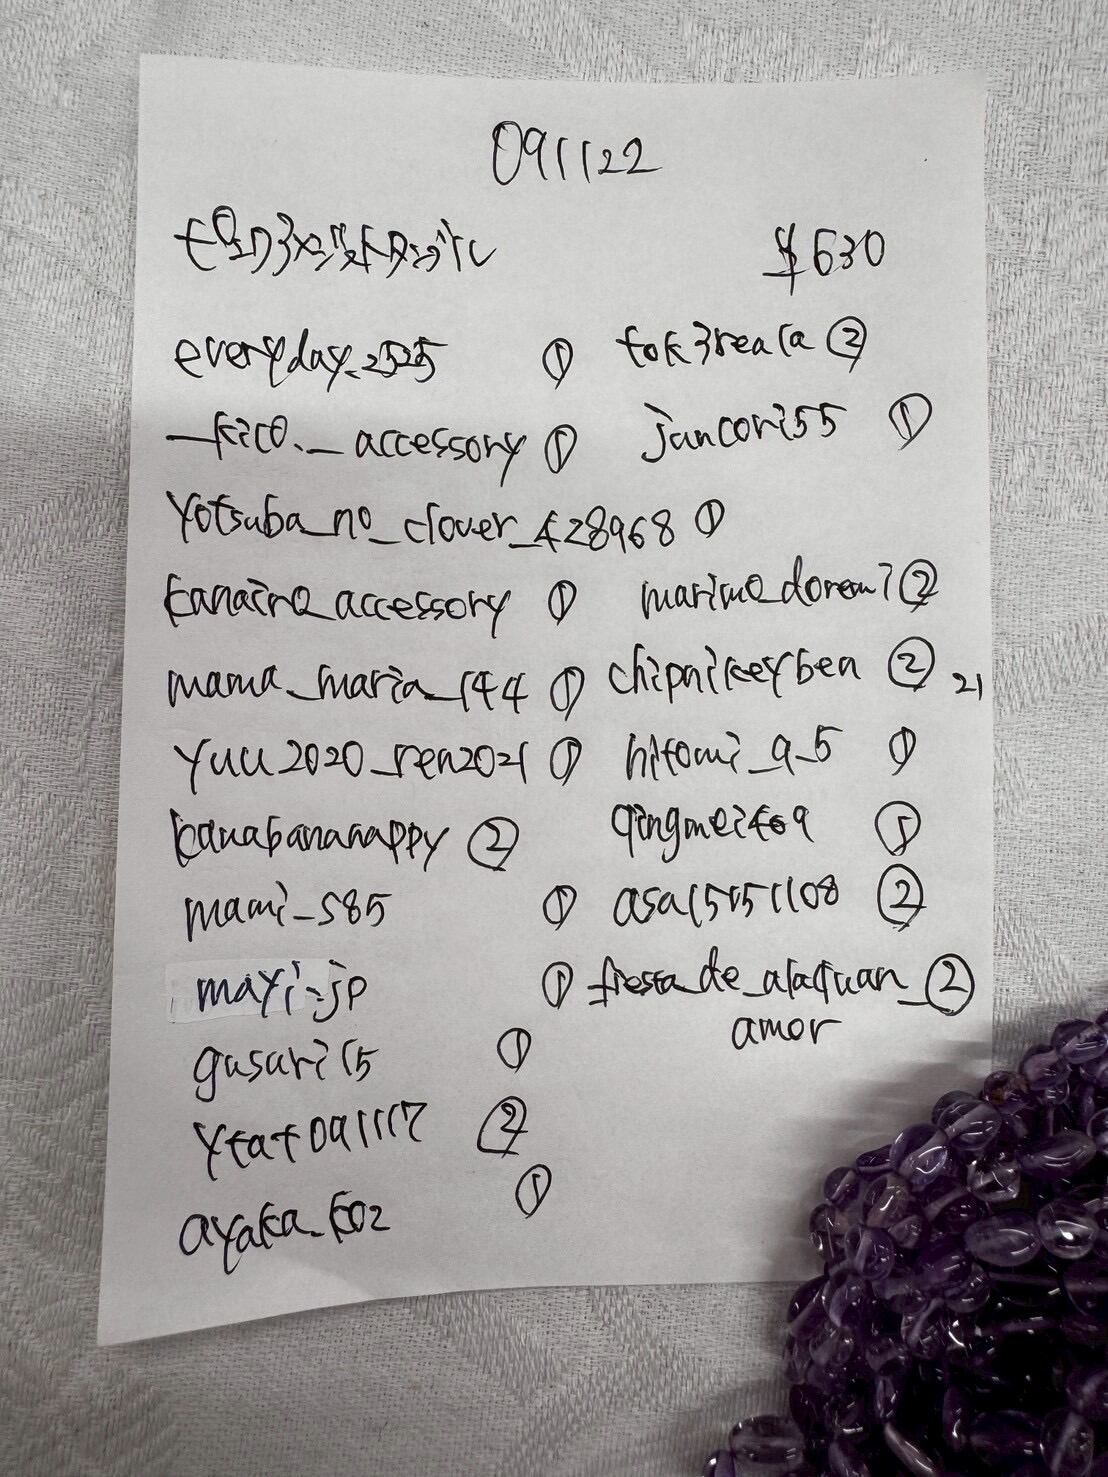 091122
¥630
everyday.2525 ① tok3reala ②
_kico._accessory ① jancori55 ①
yotsuba_no_clover_428968 ①
kanairo_accessory ① marimo_doremi ②
mama_maria_144 ① chipnikeyben ② 21
yuu2020_ren2021 ① hitomi_9_5 ①
kanabananappy ② qingmei409
mami_s85 ① asa15151108 ②
mayi_jp ① fiesta_de_alaquan_ ②
amor
gusuri15 ①
ytat091117 ②
ayaka_k02 ①